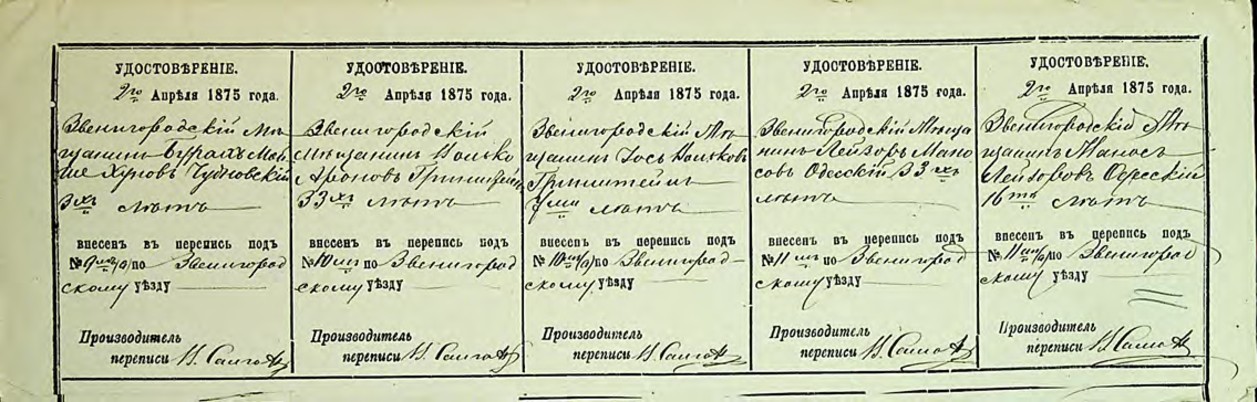 УДОСТОВѢРЕНІЕ.
2го Апрѣля 1875 года.
Звенигородскій Мѣ
щанинъ Бурахъ Мой
ше Хуновъ Чудновскій
3хъ лѣтъ
внесенъ въ перепись подъ
№ 9мъ (а) по Звенигород
скому уѣзду
Производитель
переписи
УДОСТОВѢРЕНІЕ.
2го Апрѣля 1875 года.
Звенигородскій
Мѣщанинъ Волько
Ароновъ Гринштейнъ
33хъ лѣтъ
внесенъ въ перепись подъ
№ 10мъ по Звенигород
скому уѣзду
Производитель
переписи
УДОСТОВѢРЕНІЕ.
2го Апрѣля 1875 года.
Звенигородскій Мѣ
щанинъ Іось Вольковъ
Гринштейнъ
7ми лѣтъ
внесенъ въ перепись подъ
№ 10мъ (а) по Звенигород-
скому уѣзду
Производитель
переписи
УДОСТОВѢРЕНІЕ.
2го Апрѣля 1875 года.
Звенигородскій Мѣща
нинъ Лейзоръ Мано
совъ Одесскій 33хъ
лѣтъ
внесенъ въ перепись подъ
№ 11мъ по Звенигород
скому уѣзду
Производитель
переписи
УДОСТОВѢРЕНІЕ.
2го Апрѣля 1875 года.
Звенигородскій Мѣ
щанинъ Маносъ
Лейзоровъ Одесскій
16ти лѣтъ
внесенъ въ перепись подъ
№ 11мъ (а) по Звенигород
скому уѣзду
Производитель
переписи